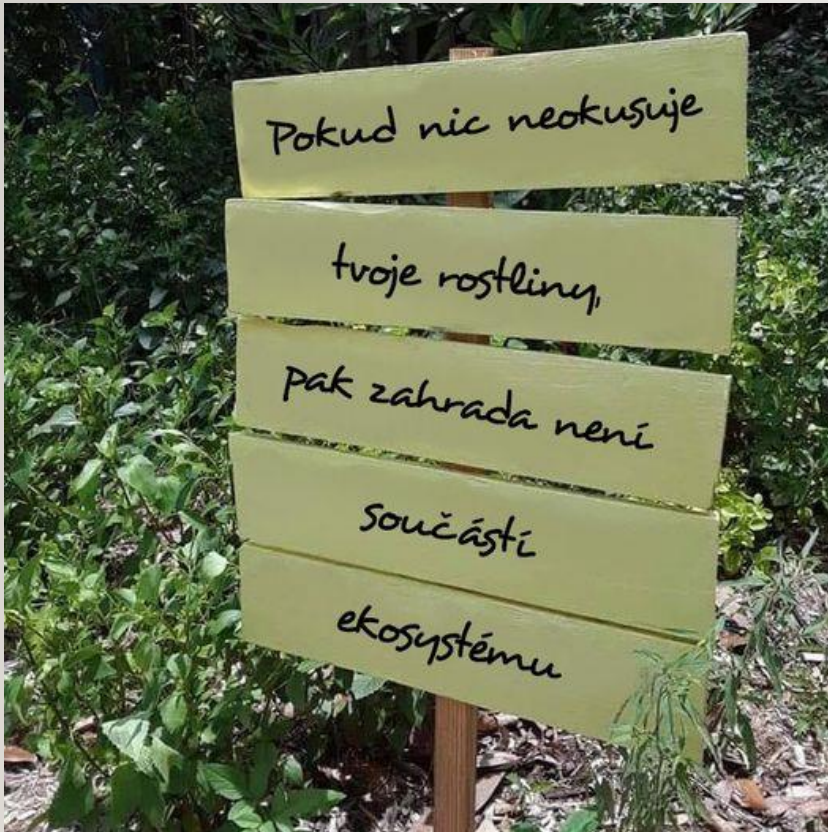 Pokud nic neokusuje
tvoje rostliny,
pak zahrada není
součástí
ekosystému